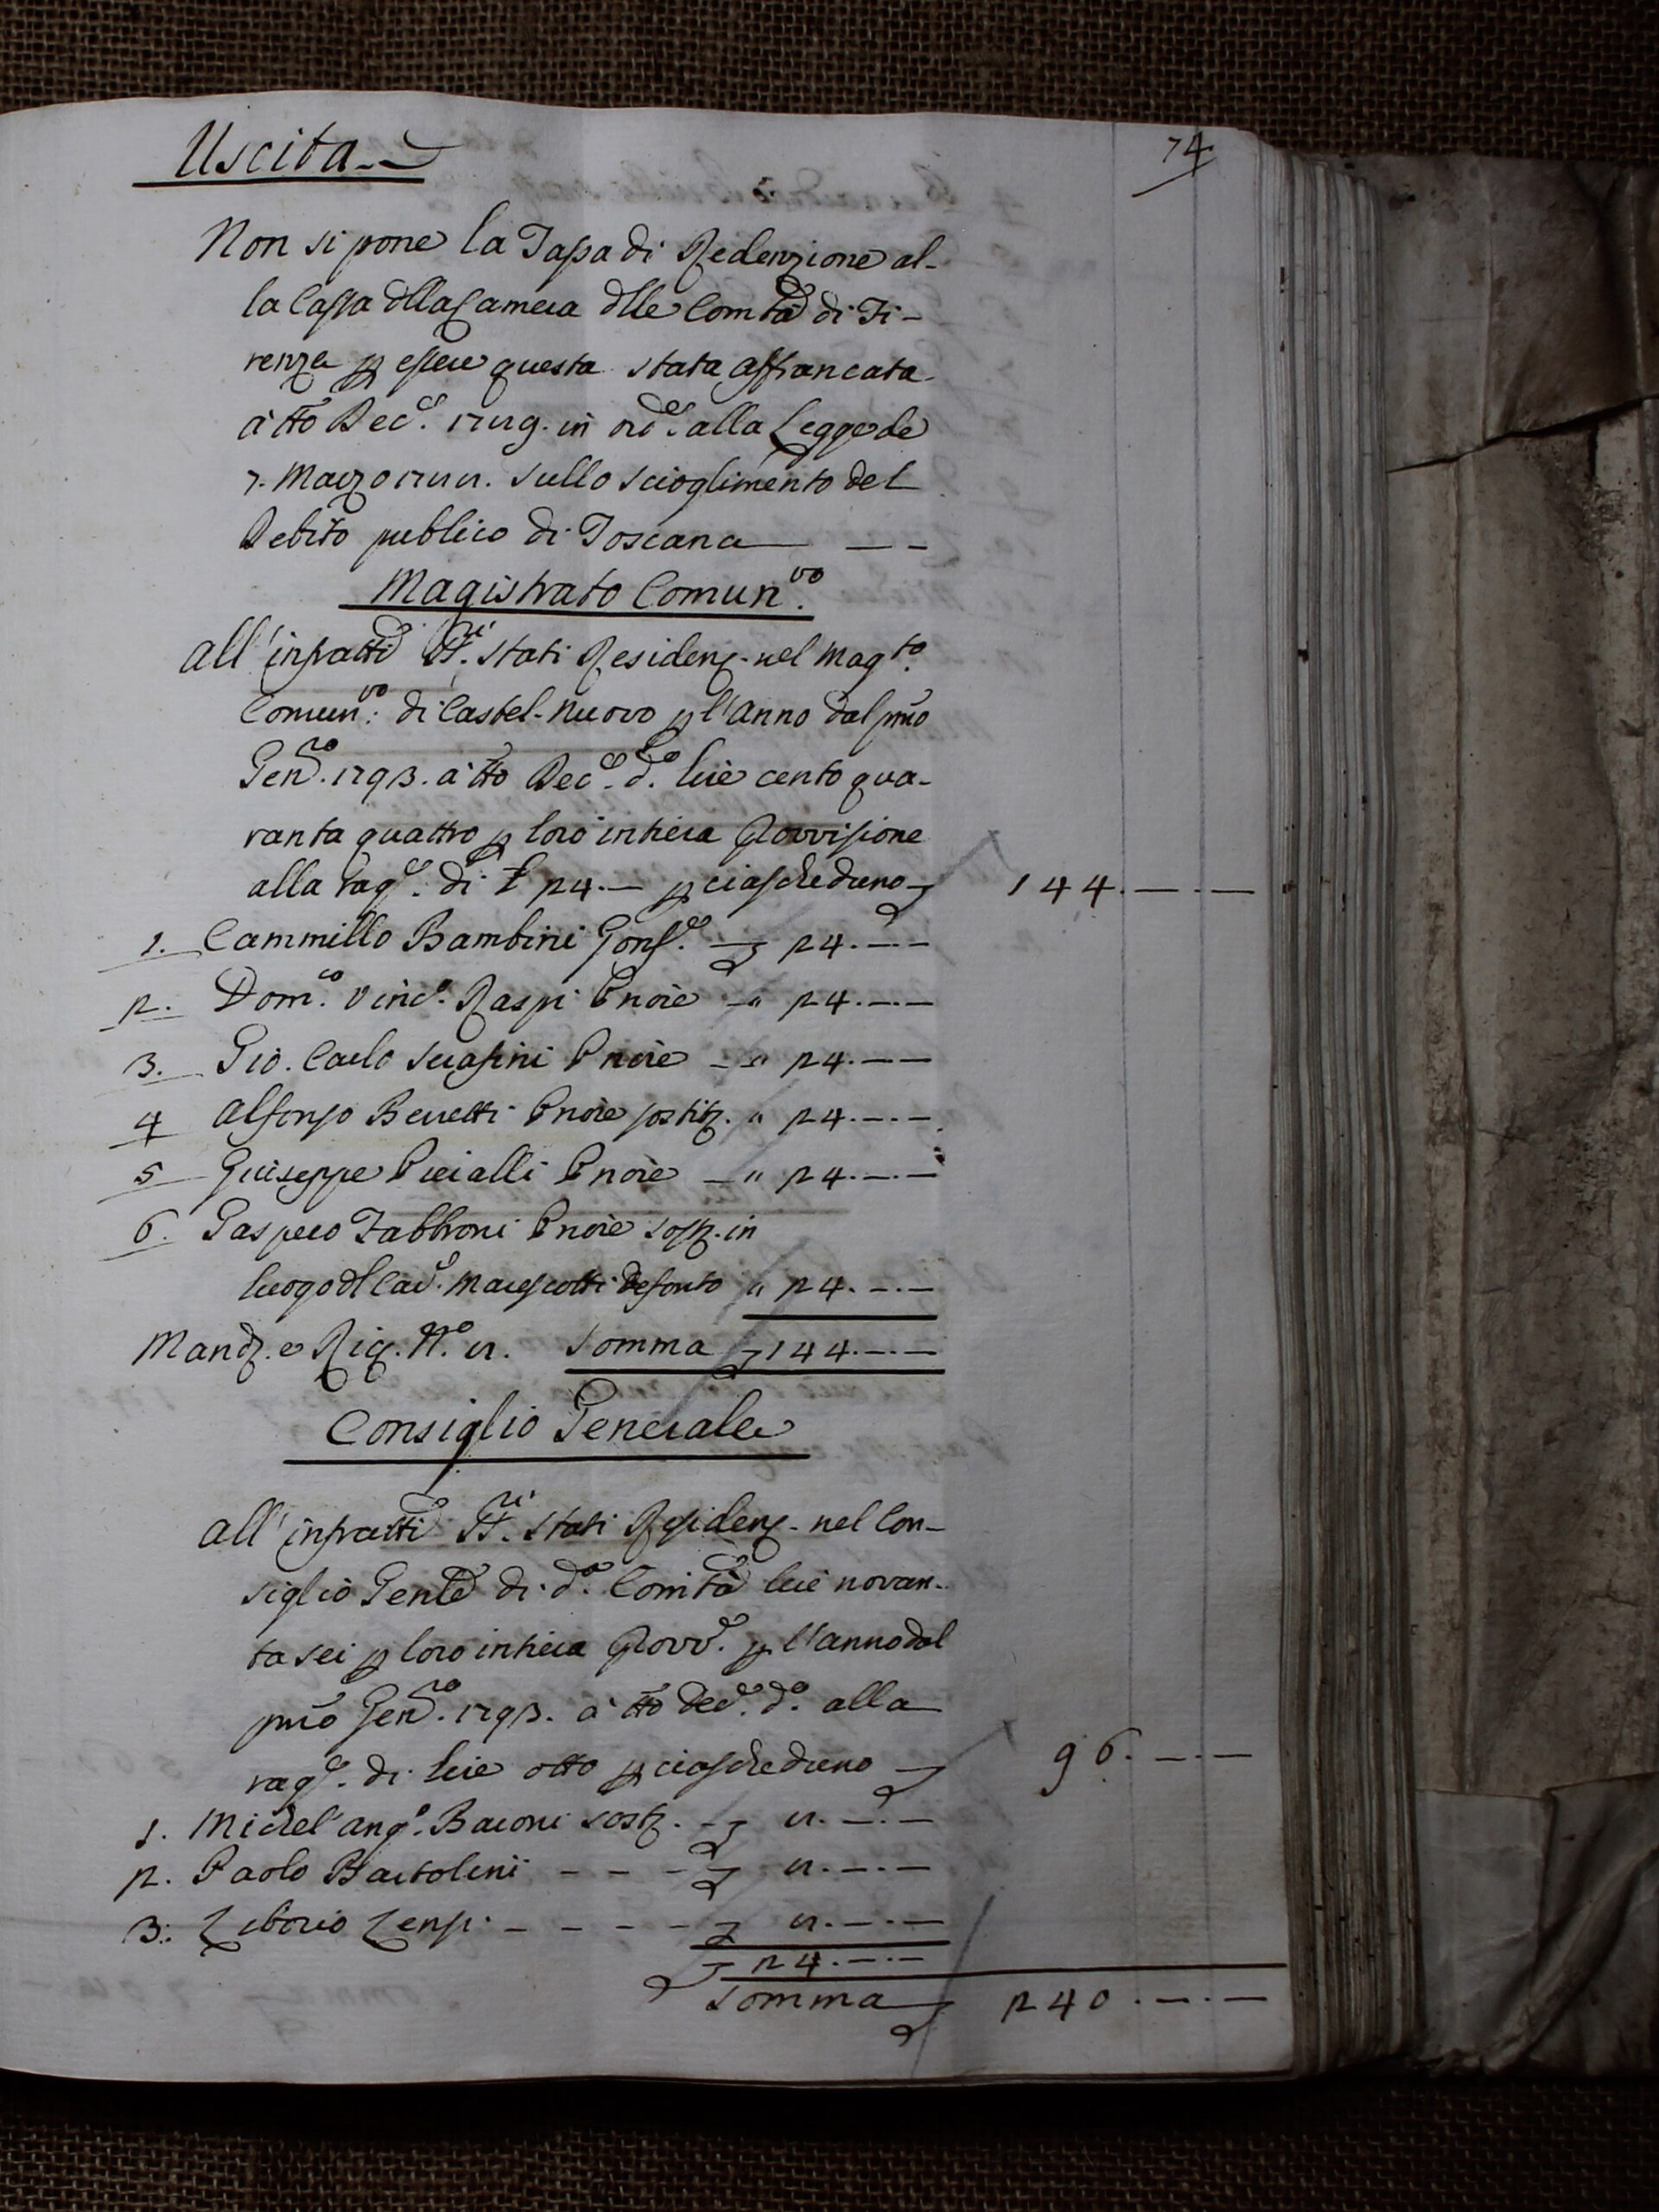 Uscita
74
Non si pone la Tassa di Redenzione al-
la Cassa dlla Camera dlle Comtà di Fi-
renze p essere questa stata affrancata
à tto Dec.e 1789. in ord.e alla Legge de
7. Marzo 1788. sullo scioglimento del
Debito publico di Toscana
Magistrato Comun.vo
all'infratti SS.ri stati Residenz. nel Mag.to
Comun.vo di Castel-Nuovo p l'Anno dal pmo
Genn.ro 1793. à tto Dec.e d.o lire cento qua-
ranta quattro p loro intiera Provvisione
alla rag.e di £ 24.— p ciascheduno 144.—.—
1. Cammillo Bambini Gonf.e 24.—.—
2. Dom.co Vinc.o Raspi Priore " 24.—.—
3. Gio. Carlo Serafini Priore " 24.—.—
4 Alfonso Berretti Priore sostit. " 24.—.—
5 Giuseppe Pierialli Priore " 24.—.—
6. Gaspero Fabbroni Priore sost. in
luogo dl Cav.e Marescotti defonto " 24.—.—
Mand. e Ric. N.o 8. Somma 144.—.—
Consiglio Generale
all'infratti SS.ri stati Residenz. nel Con-
siglio Genle di d.a Comtà lire novan-
ta sei p loro intiera Provv.e p l'anno dal
pmo Genn.ro 1793. à tto Dec.e d.o alla
rag.e di lire otto p ciascheduno 96.—.—
1. Michel'ang.o Baroni sost. 8.—.—
2. Paolo Bartolini 8.—.—
3. Liborio Lensi 8.—.—
24.—.—
Somma 240.—.—